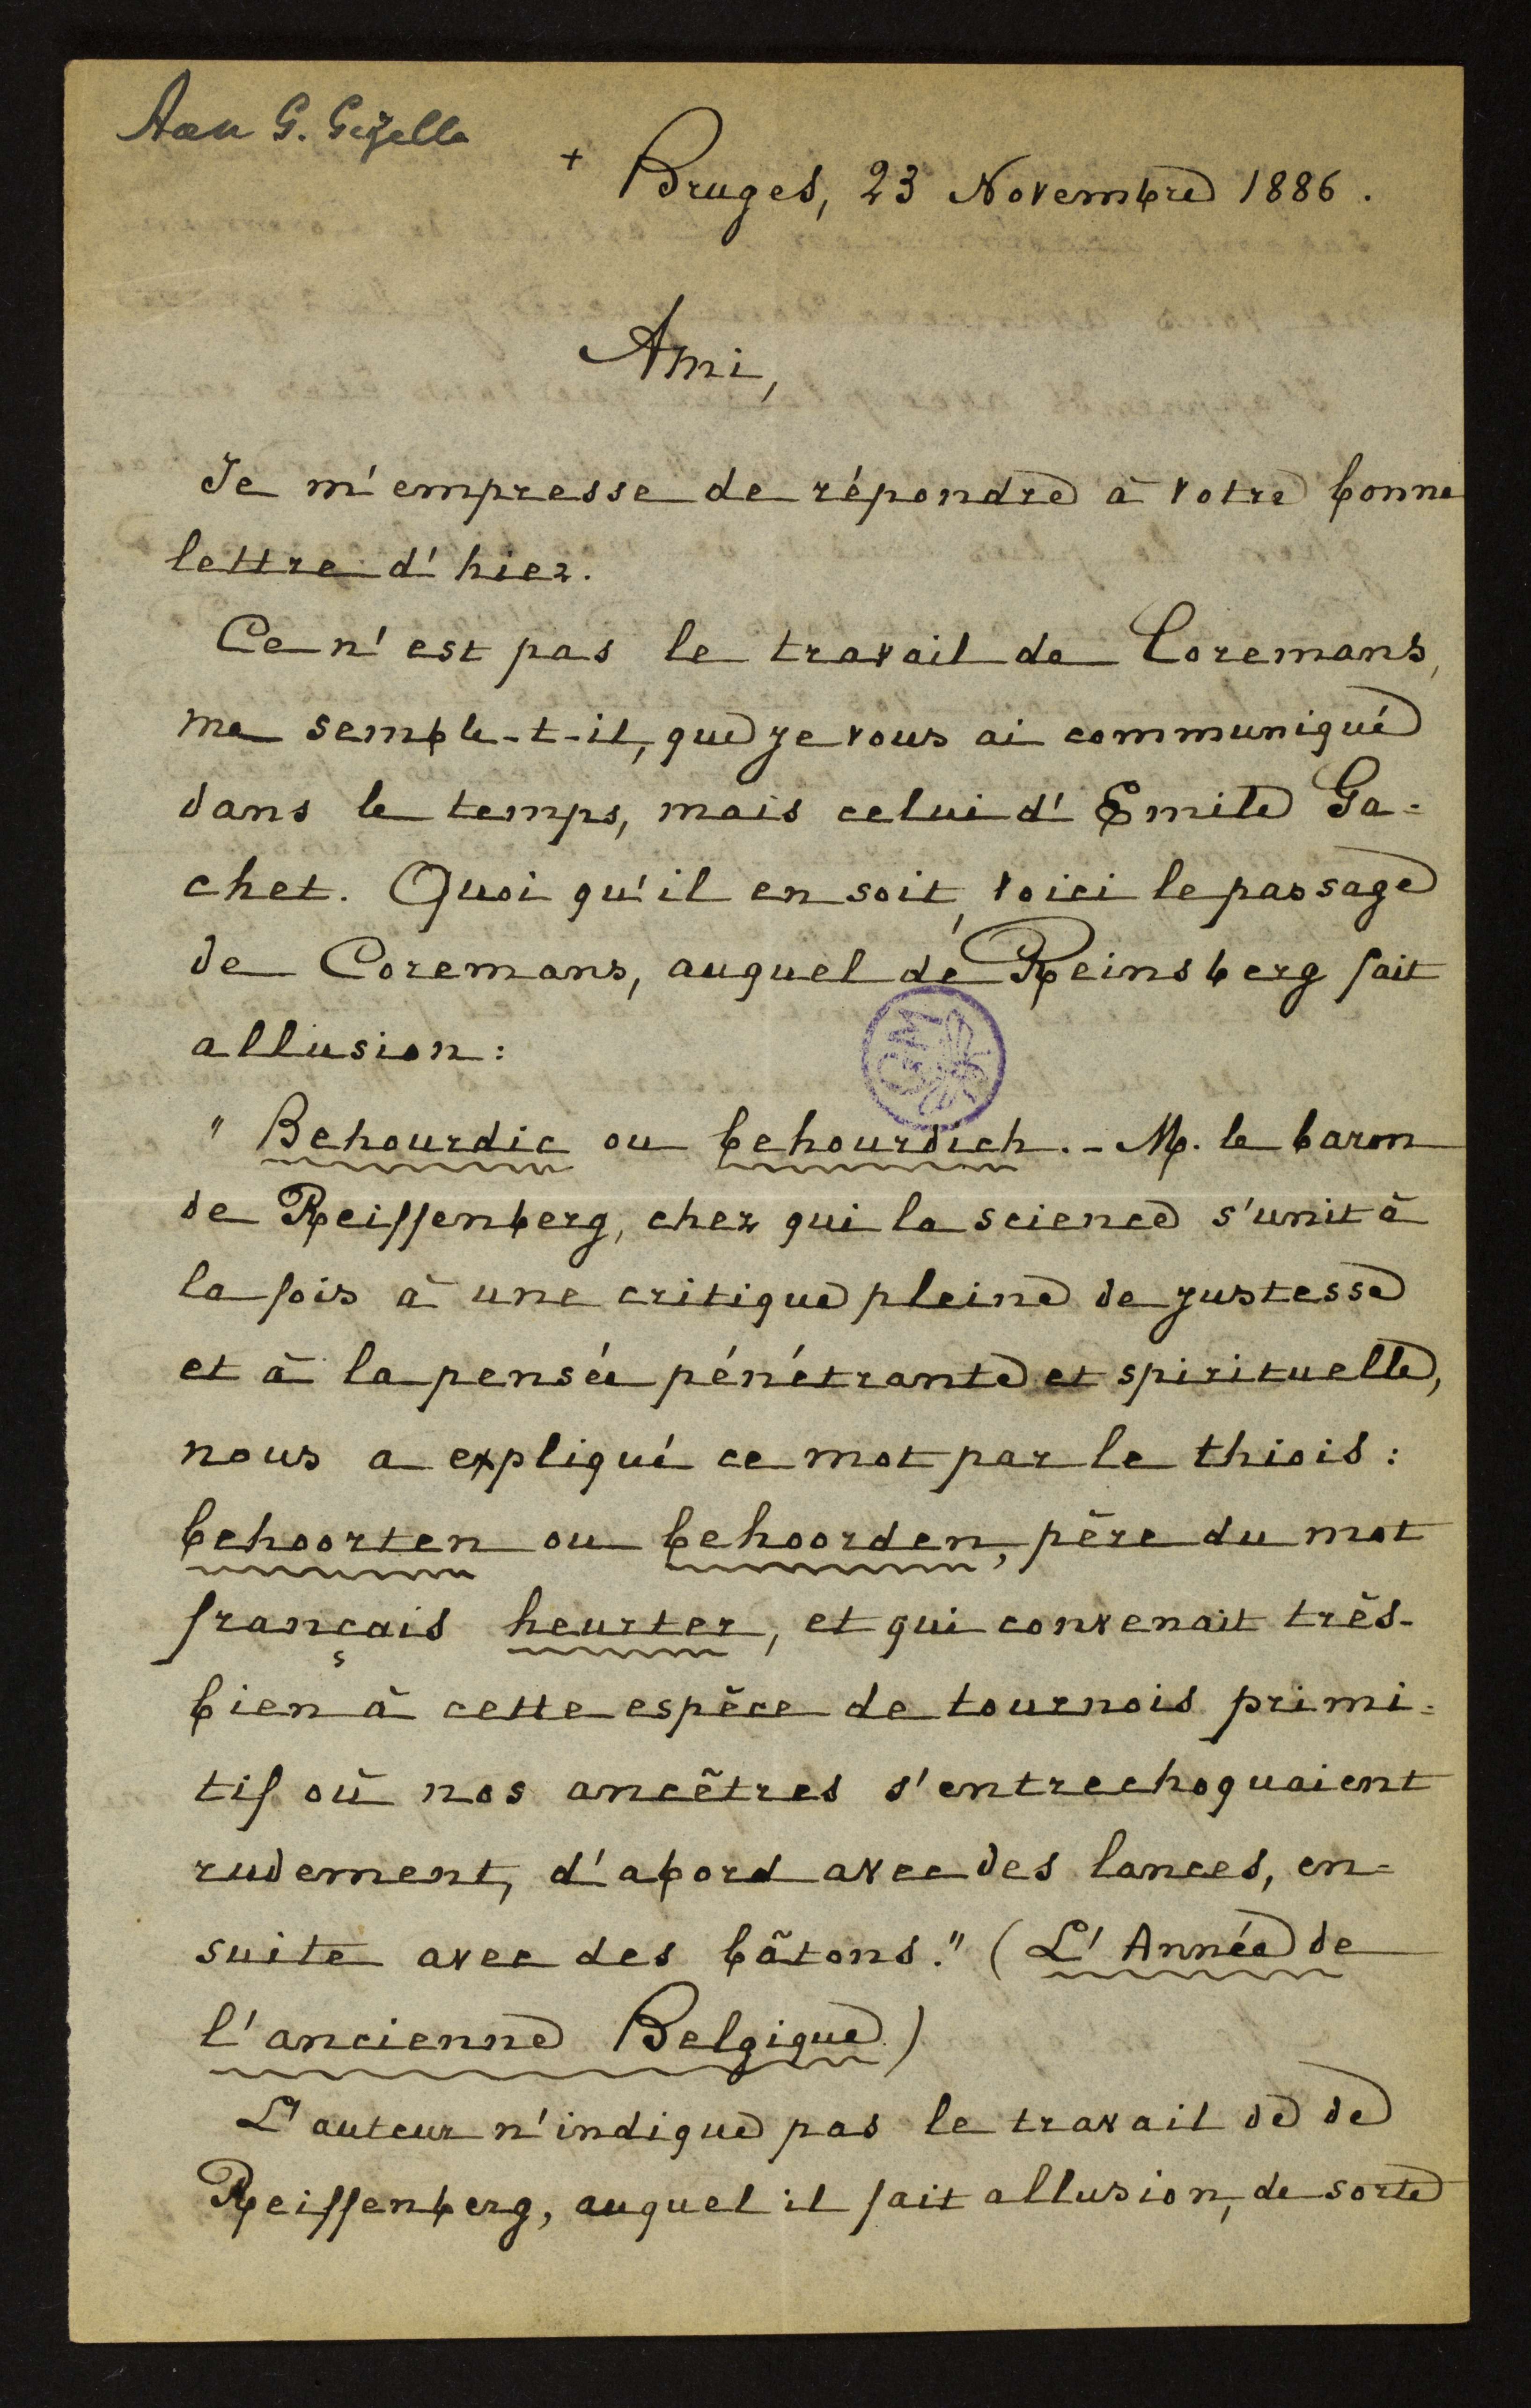 Aan G. Gezelle
+ Bruges, 23 Novembre 1886.
Ami,
Je m'empresse de répondre à votre bonne
lettre d'hier.
Ce n'est pas le travail de Coremans,
me semble-t-il, que je vous ai communiqué
dans le temps, mais celui d'Emile Ga-
chet. Quoi qu'il en soit, voici le passage
de Coremans, auquel de Reinsberg fait
allusion:
"Behourdic ou behourdich. - M. le baron
de Reiffenberg, chez qui la science s'unit à
la fois à une critique pleine de justesse
et à la pensée pénétrante et spirituelle,
nous a expliqué ce mot par le thiois:
behoorten ou behoorden, père du mot
français heurter, et qui convenait très-
bien à cette espèce de tournois primi-
tif où nos ancêtres s'entrechoquaient
rudement, d'abord avec des lances, en-
suite avec des bâtons." (L'Année de
l'ancienne Belgique.)
L'auteur n'indique pas le travail de de
Reiffenberg, auquel il fait allusion, de sorte